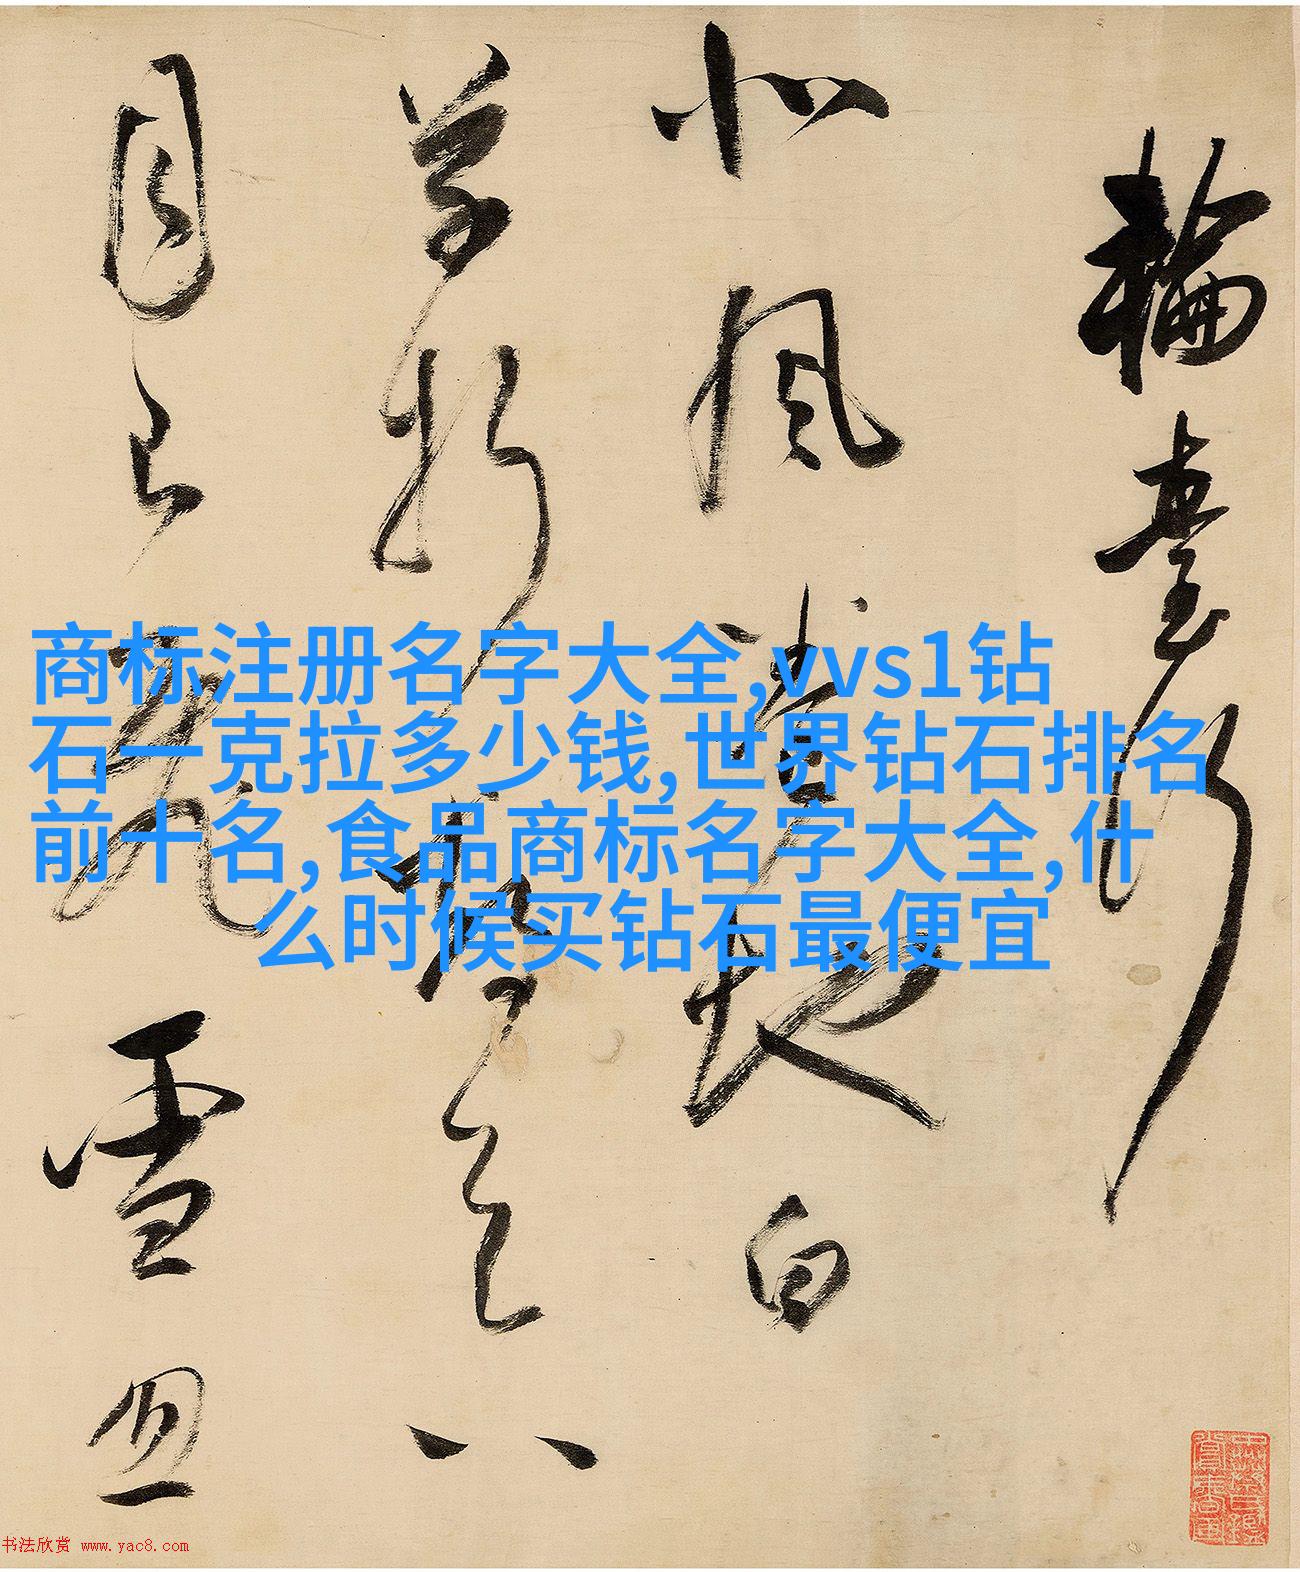 輪臺行
北風地白
草折胡天八
月飛雪
商标注册名字大全,vvs1钻
石一克拉多少钱,世界钻石排名
前十名,食品商标名字大全,什
么时候买钻石最便宜
书法欣赏 www.yac8.com